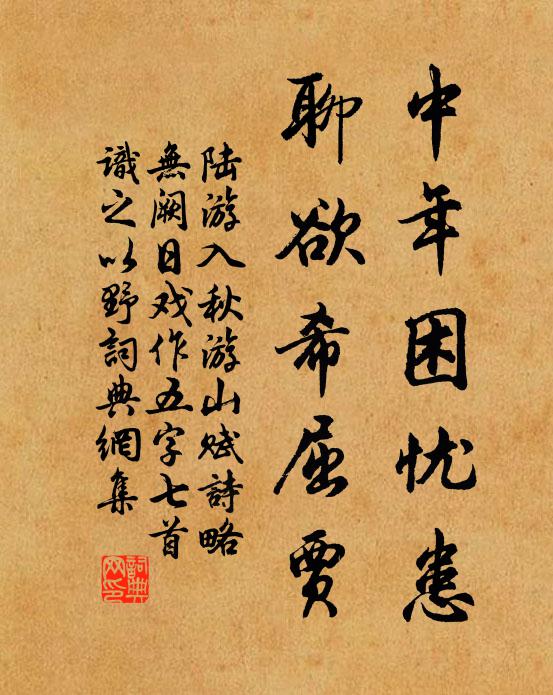 中年困忧患
聊欲希屈贾
陆游入秋游山赋詩略
無阙日戏作五字七首
識之以野詞典網集
詞典网印